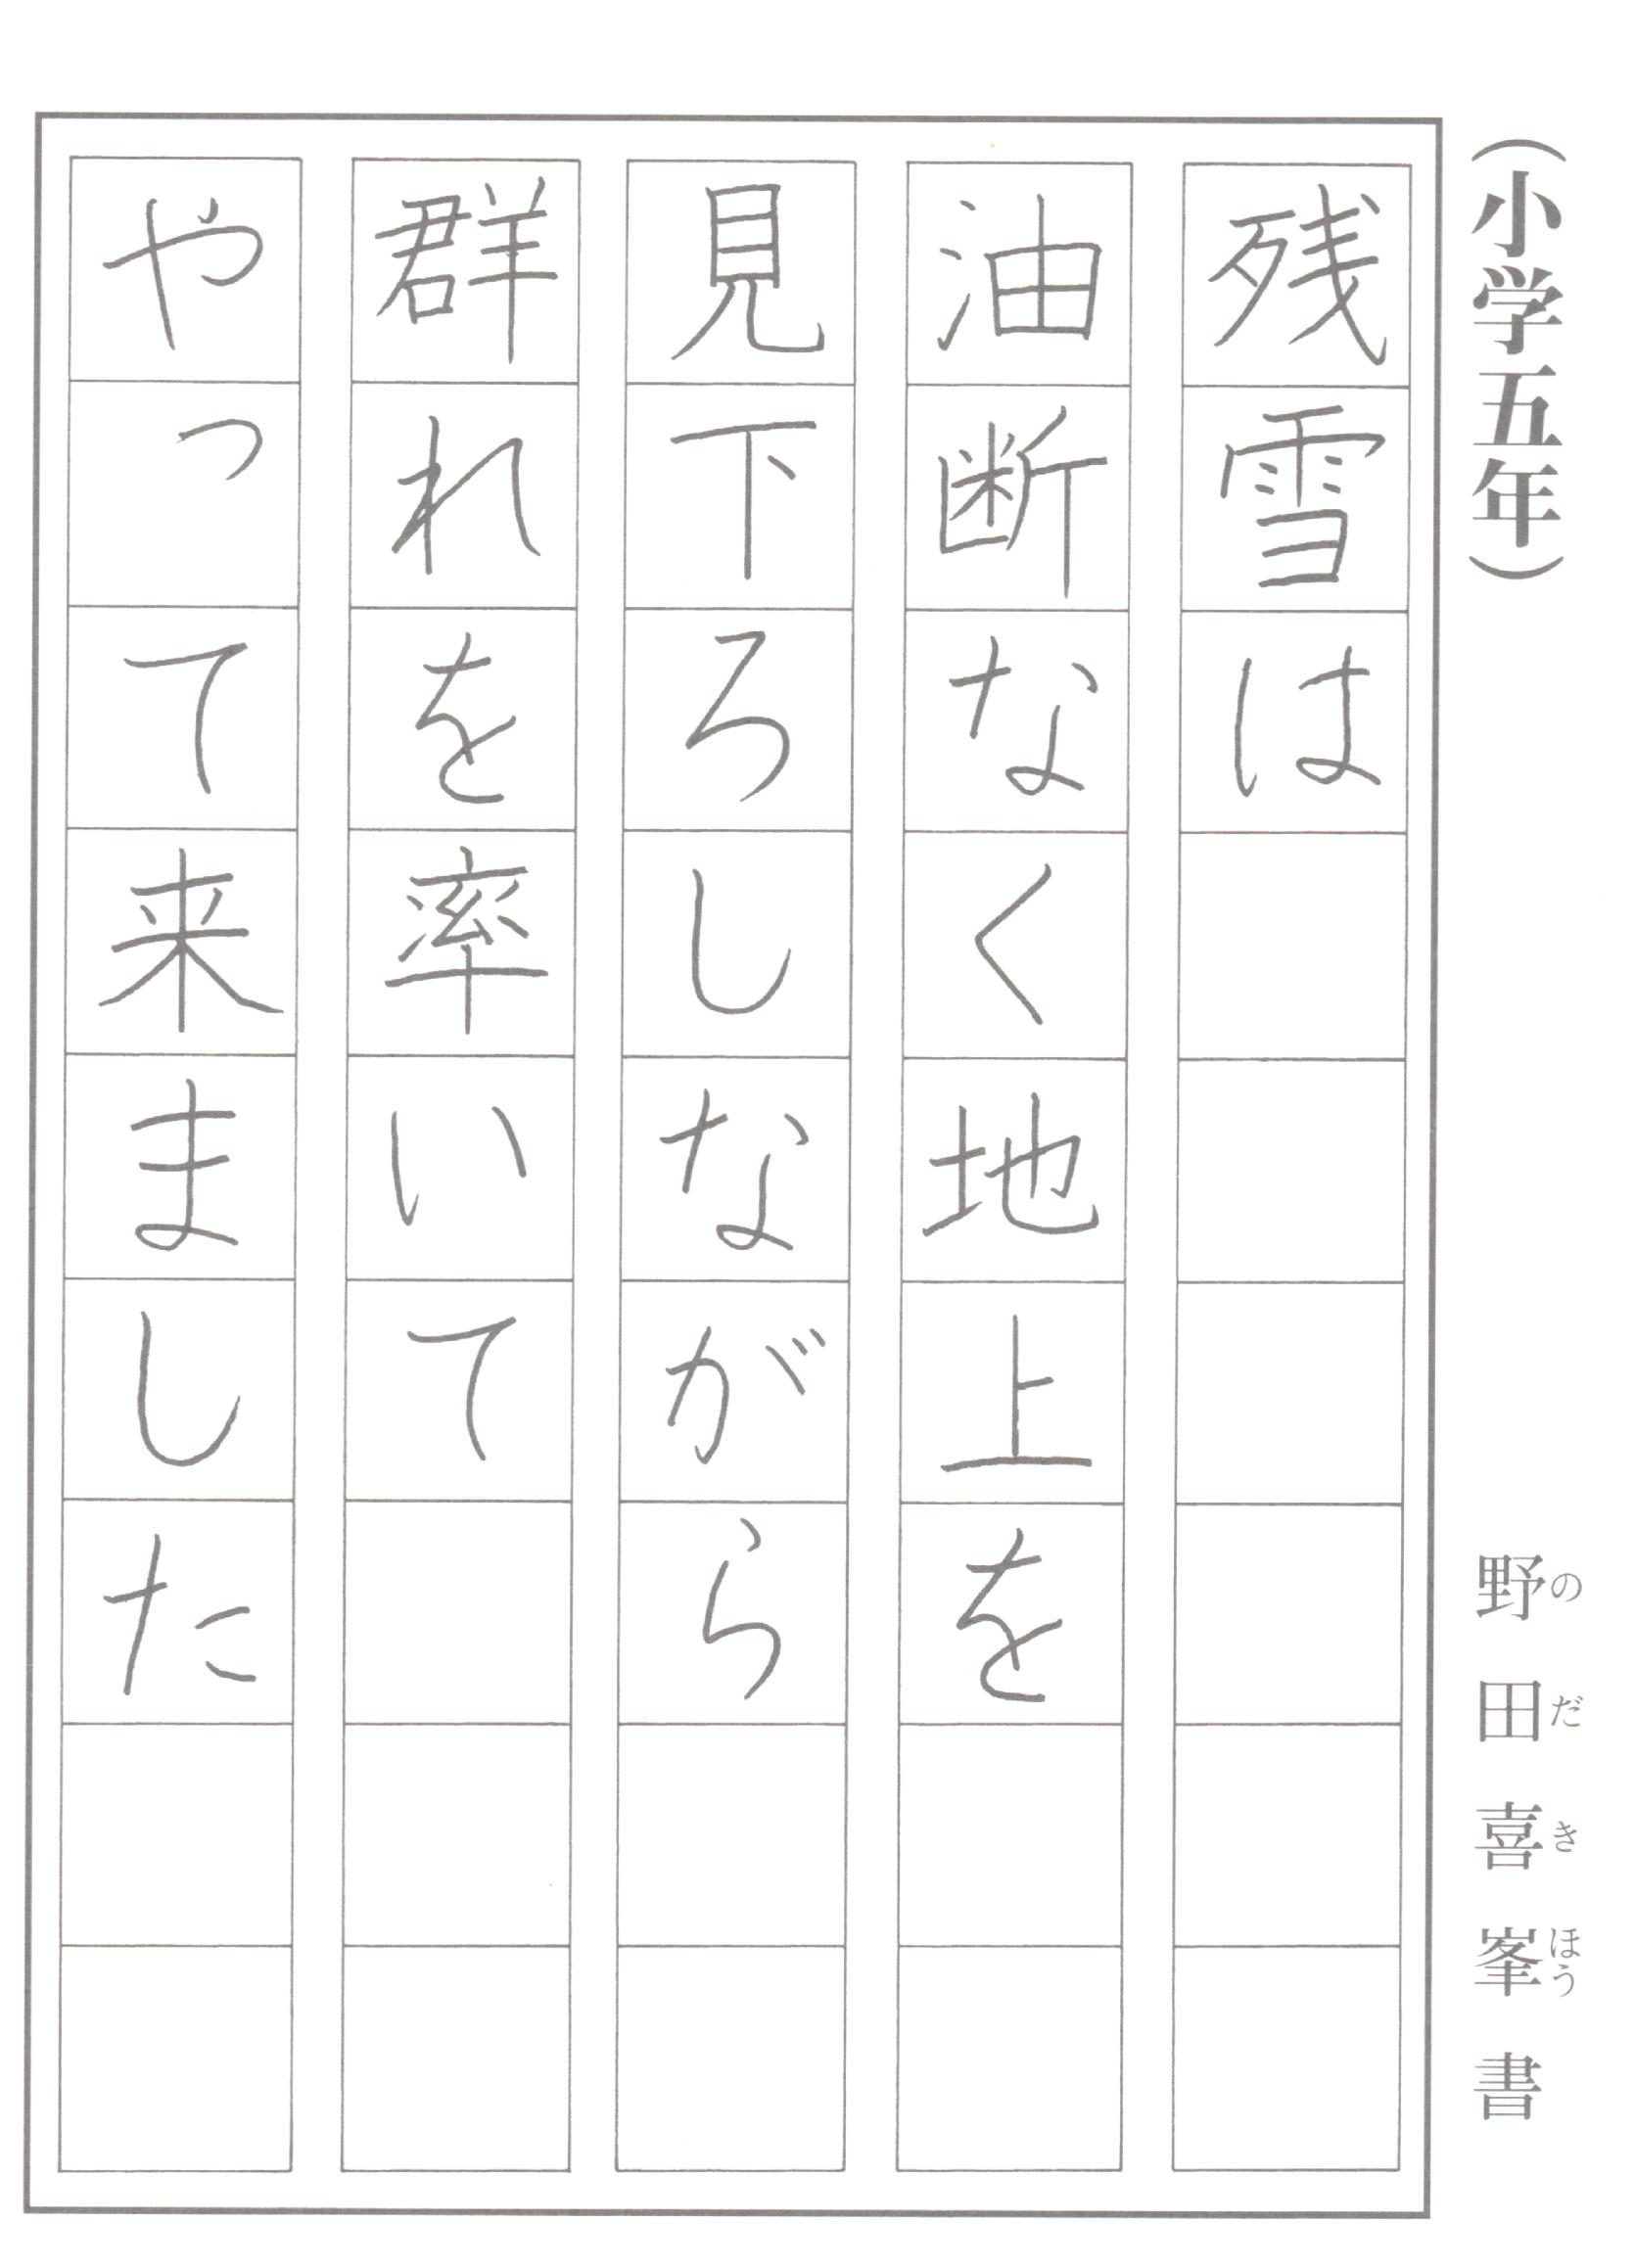 （小学五年）
野田喜峯書
のだきほう
残雪は
油断なく地上を
見下ろしながら
群れを率いて
やって来ました